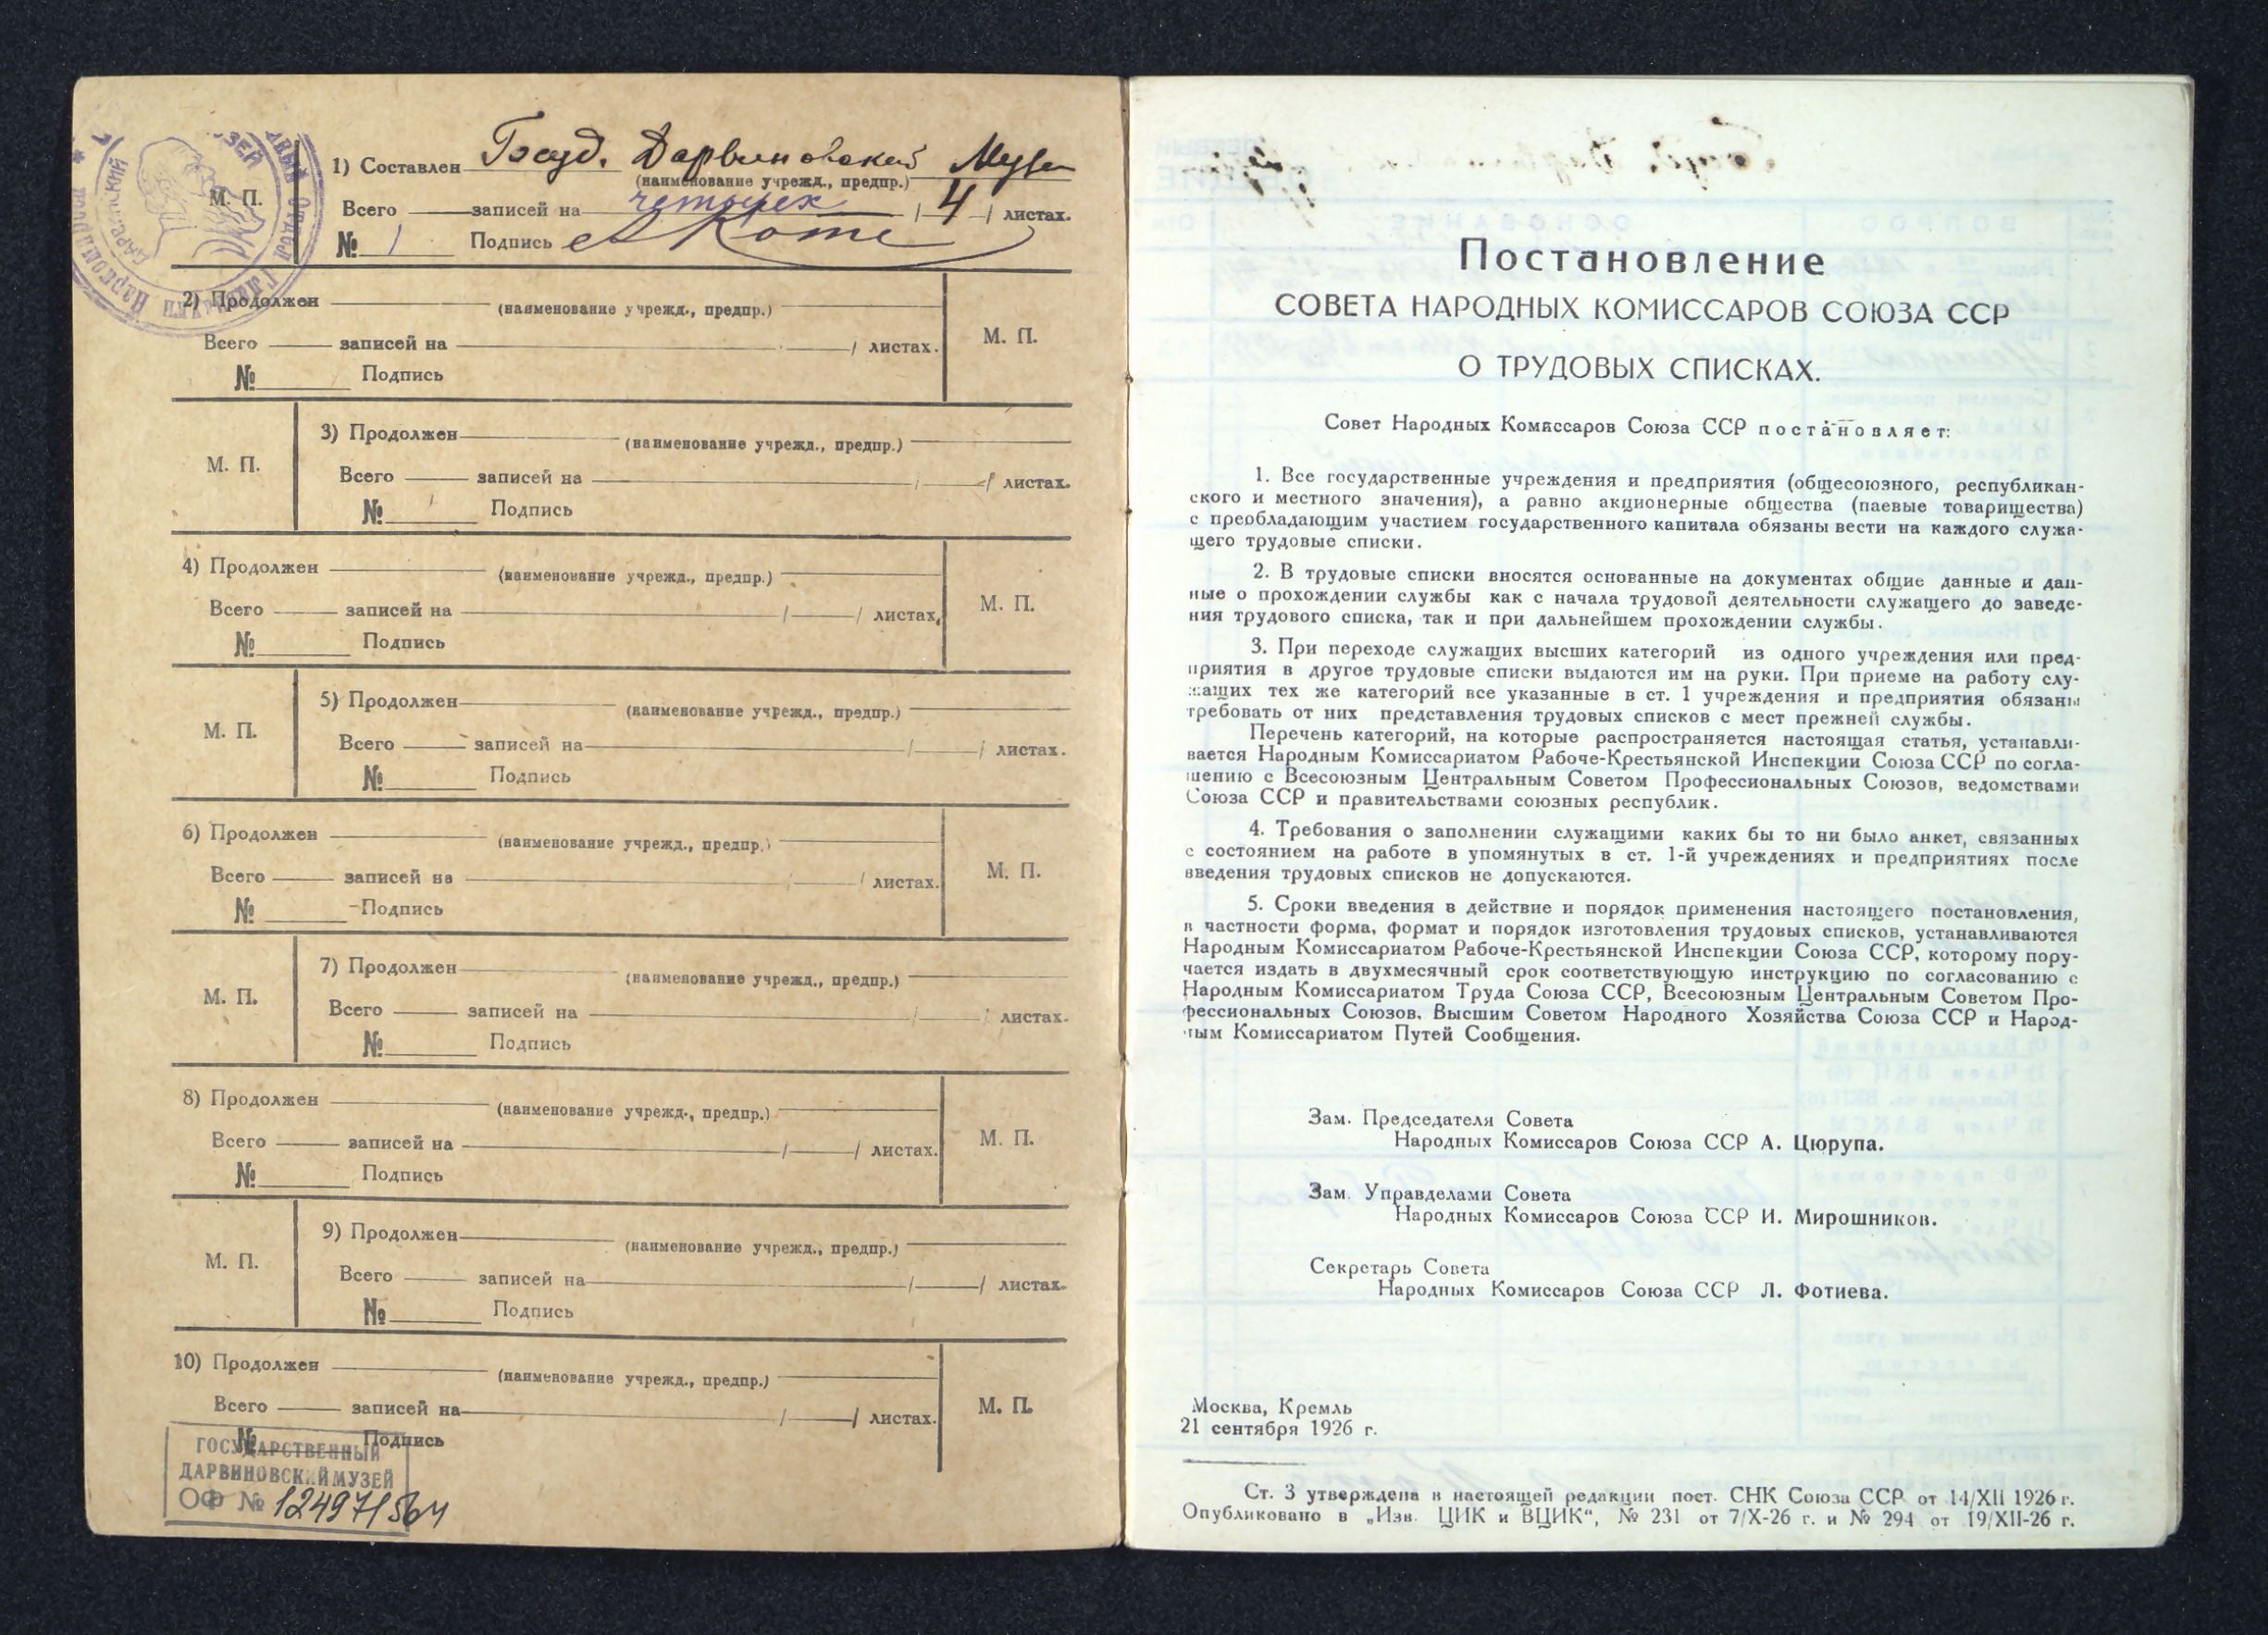 1) Составлен Госуд. Дарвиновский Музей
(наименование учрежд., предпр.)
М. П.
Всего записей на четырех / 4 / листах.
№ 1 Подпись А Котс
2) Продолжен (наименование учрежд., предпр.)
Всего записей на / листах.
М. П.
№ Подпись
3) Продолжен (наименование учрежд., предпр.)
М. П.
Всего записей на / / листах.
№ Подпись
4) Продолжен (наименование учрежд., предпр.)
Всего записей на / / листах.
М. П.
№ Подпись
5) Продолжен (наименование учрежд., предпр.)
М. П.
Всего записей на / / листах.
№ Подпись
6) Продолжен (наименование учрежд., предпр.)
Всего записей на / / листах.
М. П.
№ Подпись
7) Продолжен (наименование учрежд., предпр.)
М. П.
Всего записей на / / листах.
№ Подпись
8) Продолжен (наименование учрежд., предпр.)
Всего записей на / / листах.
М. П.
№ Подпись
9) Продолжен (наименование учрежд., предпр.)
М. П.
Всего записей на / / листах.
№ Подпись
10) Продолжен (наименование учрежд., предпр.)
Всего записей на / / листах.
М. П.
№ Подпись
ГОСУДАРСТВЕННЫЙ
ДАРВИНОВСКИЙ МУЗЕЙ
ОФ № 12497/564
Постановление
СОВЕТА НАРОДНЫХ КОМИССАРОВ СОЮЗА ССР
О ТРУДОВЫХ СПИСКАХ.
Совет Народных Комиссаров Союза ССР постановляет:
1. Все государственные учреждения и предприятия (общесоюзного, республикан-
ского и местного значения), а равно акционерные общества (паевые товарищества)
с преобладающим участием государственного капитала обязаны вести на каждого служа-
щего трудовые списки.
2. В трудовые списки вносятся основанные на документах общие данные и дан-
ные о прохождении службы как с начала трудовой деятельности служащего до заведе-
ния трудового списка, так и при дальнейшем прохождении службы.
3. При переходе служащих высших категорий из одного учреждения или пред-
приятия в другое трудовые списки выдаются им на руки. При приеме на работу слу-
жащих тех же категорий все указанные в ст. 1 учреждения и предприятия обязаны
требовать от них представления трудовых списков с мест прежней службы.
Перечень категорий, на которые распространяется настоящая статья, устанавли-
вается Народным Комиссариатом Рабоче-Крестьянской Инспекции Союза ССР по согла-
шению с Всесоюзным Центральным Советом Профессиональных Союзов, ведомствами
Союза ССР и правительствами союзных республик.
4. Требования о заполнении служащими каких бы то ни было анкет, связанных
с состоянием на работе в упомянутых в ст. 1-й учреждениях и предприятиях после
введения трудовых списков не допускаются.
5. Сроки введения в действие и порядок применения настоящего постановления,
в частности форма, формат и порядок изготовления трудовых списков, устанавливаются
Народным Комиссариатом Рабоче-Крестьянской Инспекции Союза ССР, которому пору-
чается издать в двухмесячный срок соответствующую инструкцию по согласованию с
Народным Комиссариатом Труда Союза ССР, Всесоюзным Центральным Советом Про-
фессиональных Союзов, Высшим Советом Народного Хозяйства Союза ССР и Народ-
ным Комиссариатом Путей Сообщения.
Зам. Председателя Совета
Народных Комиссаров Союза ССР А. Цюрупа.
Зам. Управделами Совета
Народных Комиссаров Союза ССР И. Мирошников.
Секретарь Совета
Народных Комиссаров Союза ССР Л. Фотиева.
Москва, Кремль
21 сентября 1926 г.
Ст. 3 утверждена в настоящей редакции пост. СНК Союза ССР от 14/XII 1926 г.
Опубликовано в „Изв. ЦИК и ВЦИК“, № 231 от 7/X-26 г. и № 294 от 19/XII-26 г.